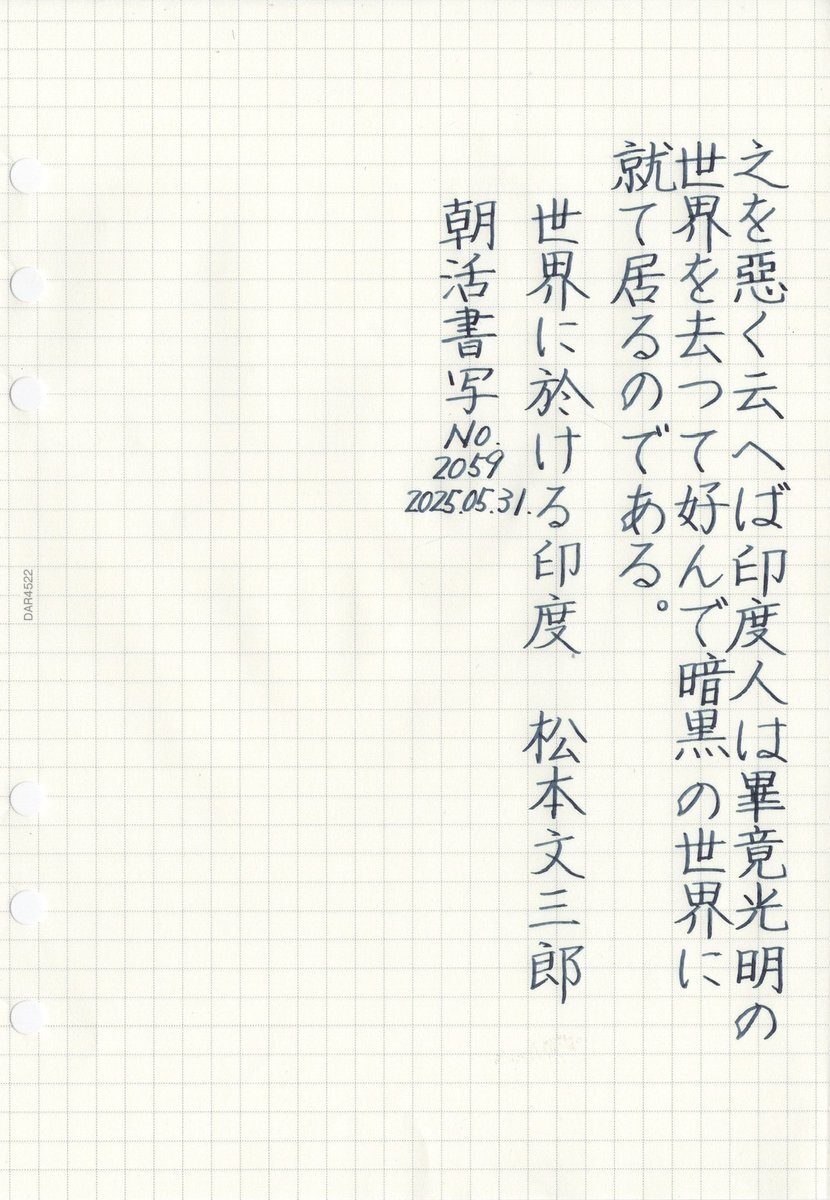 之を惡く云へば印度人は畢竟光明の
世界を去つて好んで暗黒の世界に
就て居るのである。
世界に於ける印度　松本文三郎
朝活書写
No.
2059
2025.05.31.
DAR4522